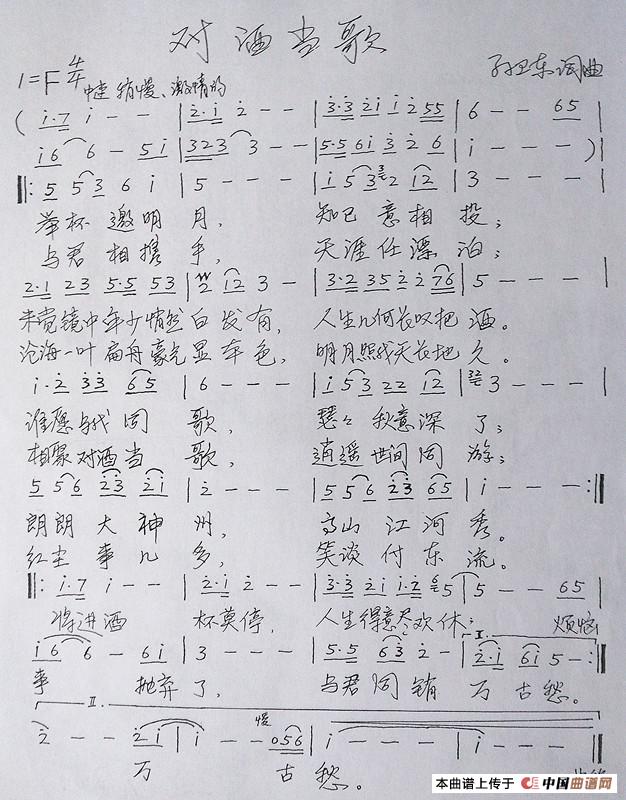 对酒当歌
1=F 4/4 中速稍慢、激情的
孙卫东词曲
( i·7 i - - | 2·i 2 - - | 3·3 2i i2 55 | 6 - - 65 |
i6 6 - 5i | 323 3 - - | 5·5 6i 3 2 6 | i - - - )|
‖: 5 5 3 6 i | 5 - - - | i 5 3 2 i2 | 3 - - - |
举杯邀明月， 知己意相投；
与君相携手， 天涯任漂泊；
2·1 23 5·5 53 | 2 i2 3 - | 3·2 35 2 2 76 | 5 - - - |
未觉镜中年少悄然白发有， 人生几何长叹把酒。
沧海一叶扁舟豪气显本色， 明月照我天长地久。
i·2 33 65 | 6 - - - | i 5 3 22 i2 | 3 - - - |
谁愿与我同歌， 瑟瑟秋意深了；
相聚对酒当歌， 逍遥世间同游；
5 5 6 23 2i | 2 - - - | 5 5 6 23 65 | i - - - :‖
朗朗大神州， 高山江河秀。
红尘事儿多， 笑谈付东流。
‖: i·7 i - - | 2·i 2 - - | 3·3 2i i·2 5 | 5 - - 65 |
将进酒 杯莫停， 人生得意尽欢休； 烦恼
i6 6 - 6i | 3 - - - | 5·5 63 2 - | I. 2·i 6i 5 - :‖
事 抛弃了， 与君同销万古愁。
II.
2 - - 2i | i - - 慢 056 | i - - - | i - - - ‖
万 古愁。
本曲谱上传于 中国曲谱网